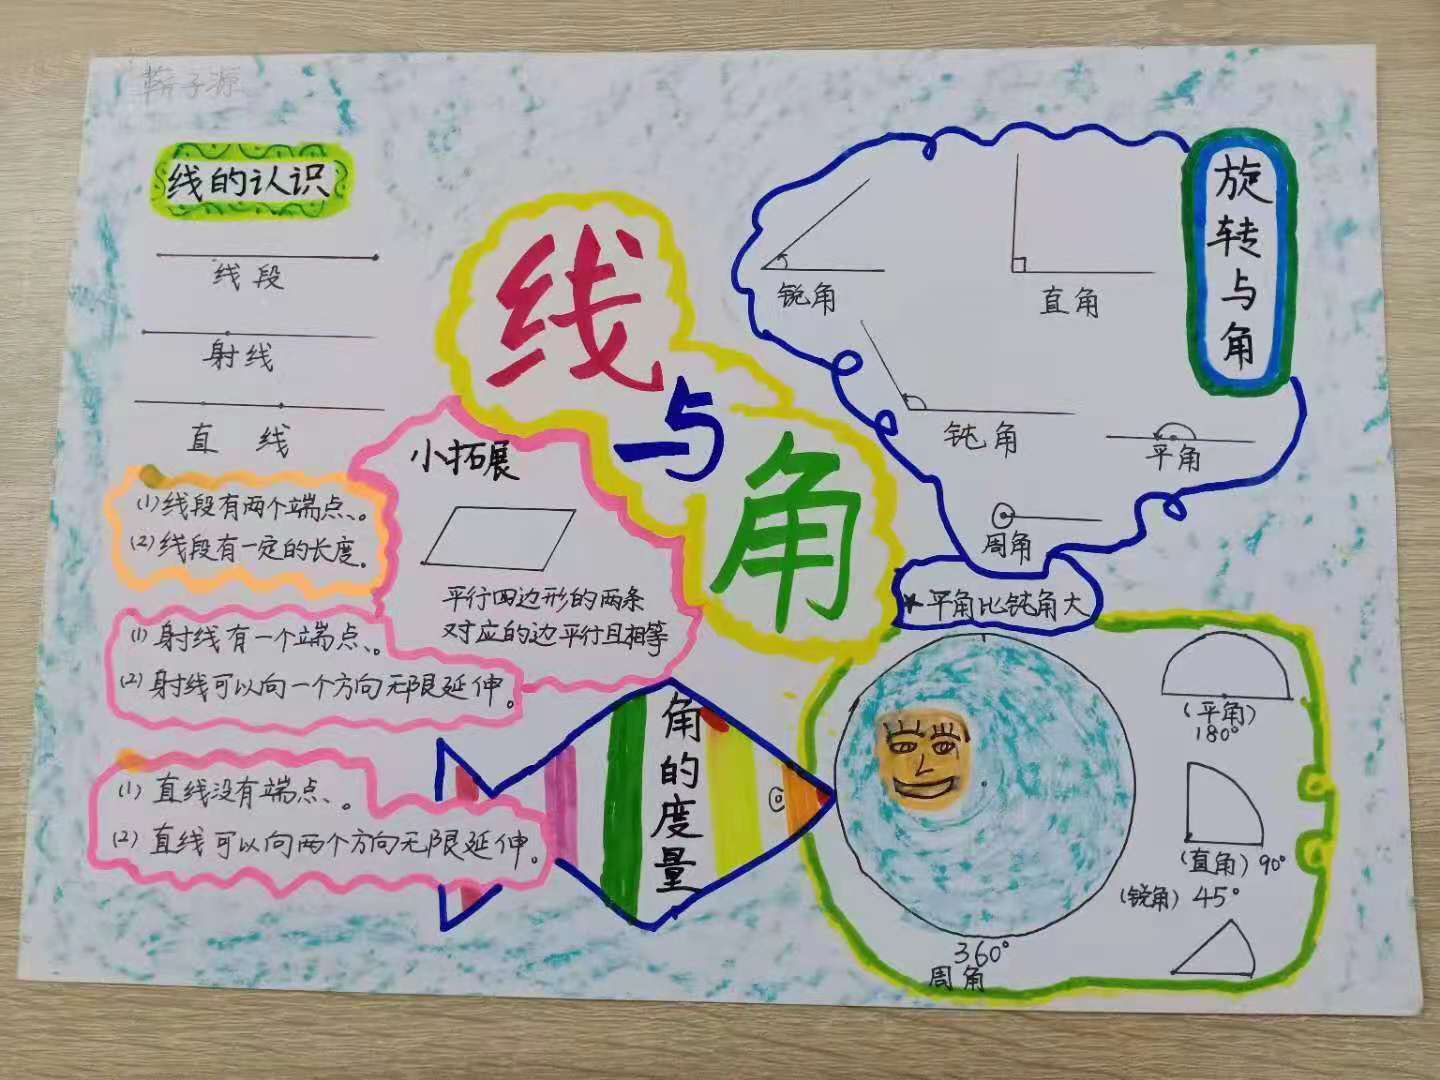 线的认识
线段
射线
直 线
(1)线段有两个端点、。
(2)线段有一定的长度。
(1)射线有一个端点、。
(2)射线可以向一个方向无限延伸。
(1)直线没有端点、。
(2)直线可以向两个方向无限延伸。
线
与
角
小拓展
平行四边形的两条
对应的边平行且相等
角的度量
旋转与角
锐角
直角
钝角
平角
周角
★平角比钝角大
(平角)
180°
(直角) 90°
(锐角) 45°
360°
周角